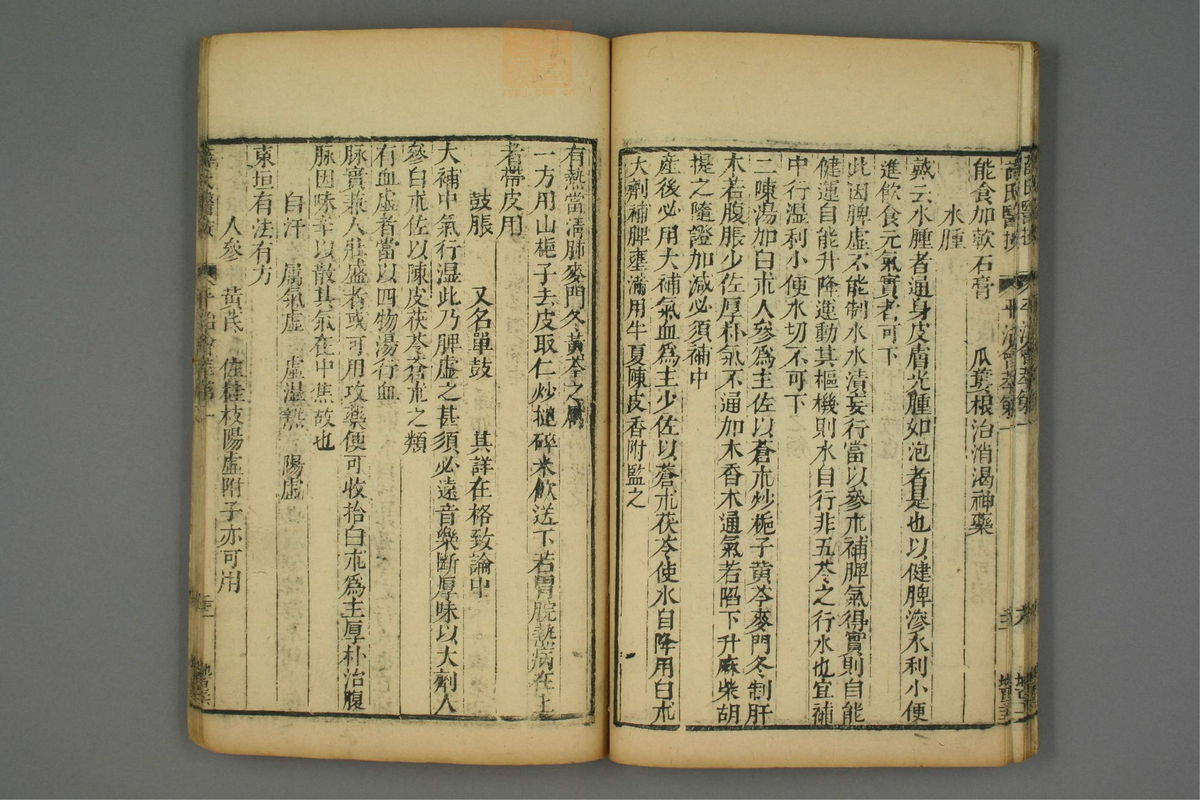 薛氏醫按
平治會萃
能食加軟石膏　瓜蔞根治消渴神藥
水腫
戴云水腫者通身皮膚光腫如泡者是也以健脾滲水利小便
進飲食元氣實者可下
此因脾虛不能制水水漬妄行當以參朮補脾氣得實則自能
健運自能升降運動其樞機則水自行非五苓之行水也宜補
中行濕利小便水切不可下
二陳湯加白朮人參爲主佐以蒼朮炒梔子黃芩麥門冬制肝
木若腹脹少佐厚朴氣不通加木香木通氣若陷下升麻柴胡
提之隨證加減必須補中
產後必用大補氣血爲主少佐以蒼朮茯苓使水自降用白朮
大劑補脾壅滿用半夏陳皮香附監之
有熱當清肺麥門冬黃芩之屬
一方用山梔子去皮取仁炒搥碎米飲送下若胃脘熱病在上
者帶皮用
鼓脹　又名單鼓　其詳在格致論中
大補中氣行濕此乃脾虛之甚須必遠音樂斷厚味以大劑人
參白朮佐以陳皮茯苓蒼朮之類
有血虛者當以四物湯行血
脉實兼人壯盛者或可用攻藥便可收拾白朮爲主厚朴治腹
脹因味辛以散其氣在中焦故也
自汗　屬氣虛　虛濕熱　陽虛
東垣有法有方
人參　黃芪　佐桂枝陽虛附子亦可用